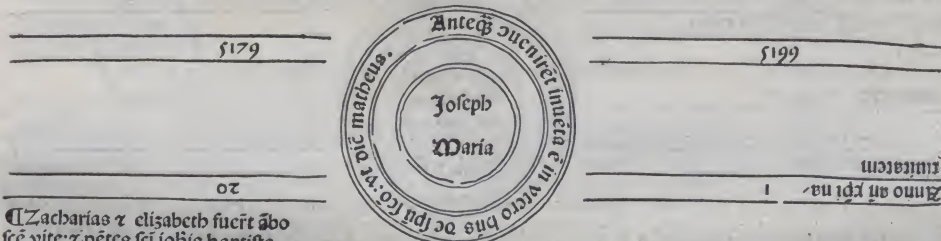 5179
5199
Anteq̃ ↄueniret̄ inuēta ē in vtero hñs de spũ scõ: vt dic̄ matheus.
Joseph
Maria
20
1
Anno añ xp̄i na-
tiuitatem
¶Zacharias ⁊ elizabeth fuer̄t ābo